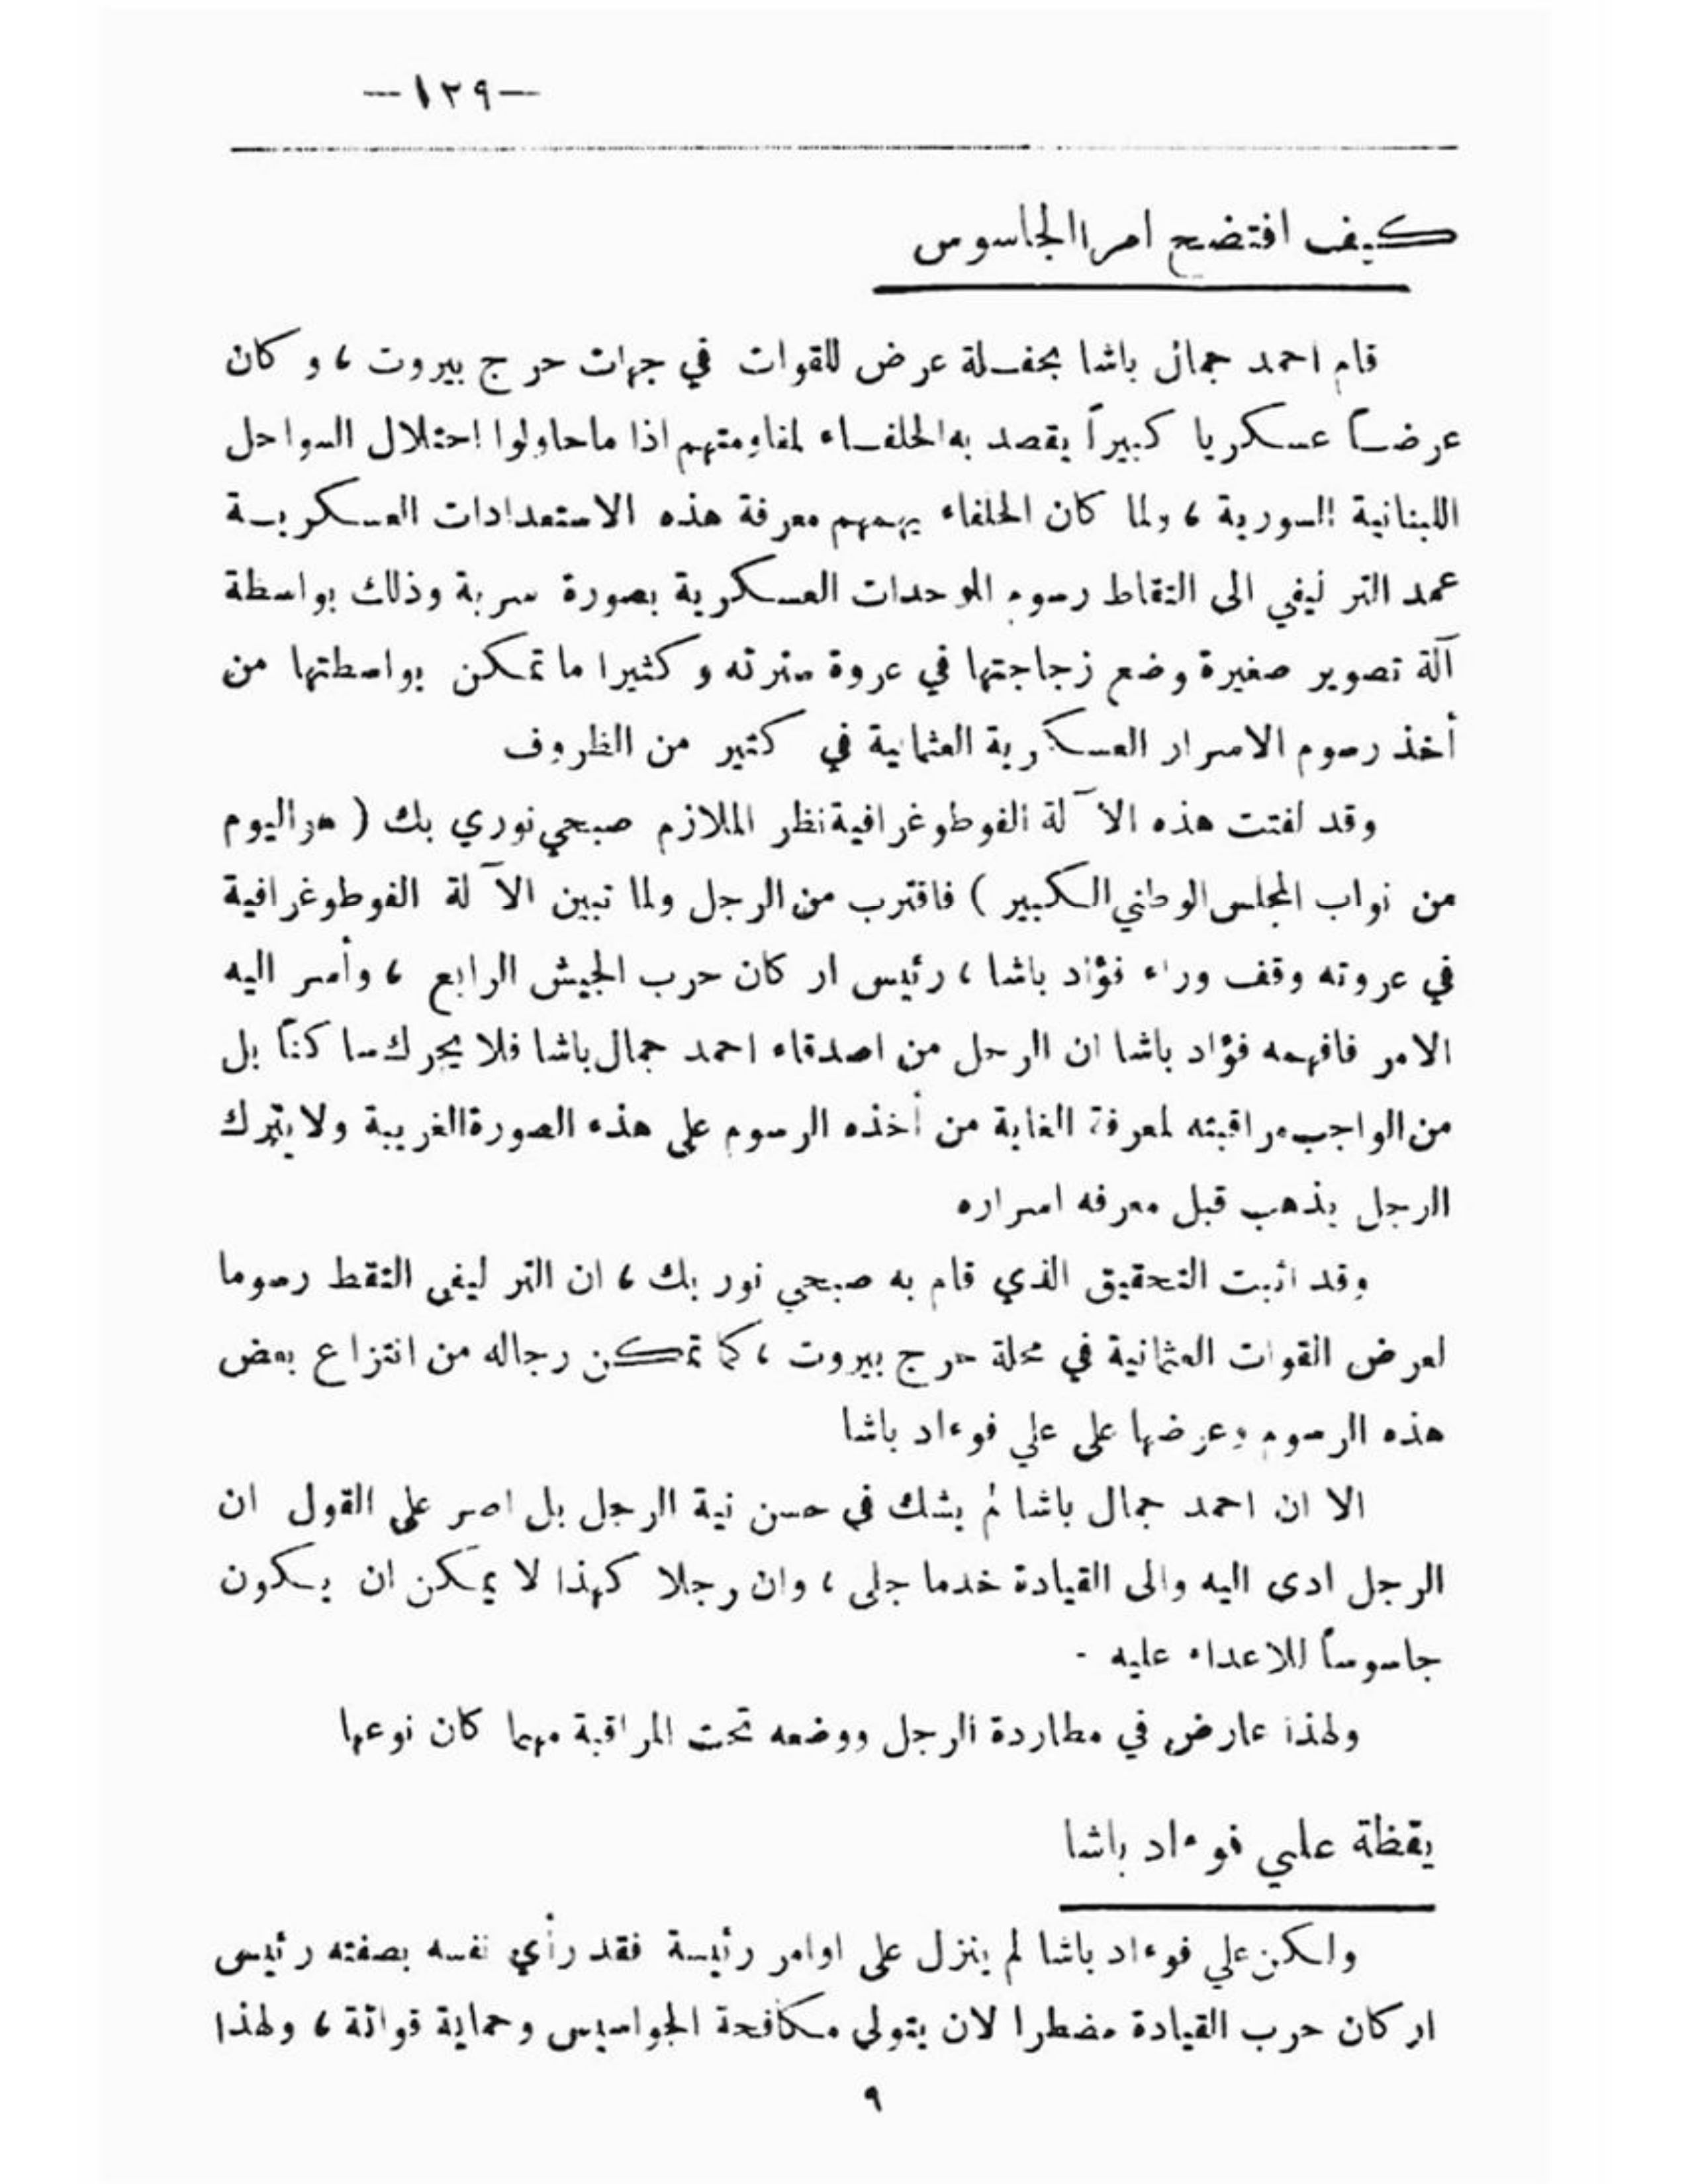 —١٢٩—
كيف افتضح امر الجاسوس
قام احمد جمال باشا بحفلة عرض للقوات في جهات حرج بيروت ، وكان
عرضاً عسكريا كبيراً يقصد به الحلفاء لمقاومتهم اذا ما حاولوا احتلال السواحل
اللبنانية السورية ، ولما كان الحلفاء يهمهم معرفة هذه الاستعدادات العسكرية
عمد التر ليفي الى التقاط رسوم الوحدات العسكرية بصورة سرية وذلك بواسطة
آلة تصوير صغيرة وضع زجاجتها في عروة سترته وكثيرا ما تمكن بواسطتها من
أخذ رسوم الاسرار العسكرية العثمانية في كثير من الظروف
وقد لفتت هذه الآلة الفوطوغرافية نظر الملازم صبحي نوري بك ( هو اليوم
من نواب المجلس الوطني الكبير ) فاقترب من الرجل ولما تبين الآلة الفوطوغرافية
في عروته وقف وراء فؤاد باشا ، رئيس اركان حرب الجيش الرابع ، وأسر اليه
الامر فافهمه فؤاد باشا ان الرجل من اصدقاء احمد جمال باشا فلا يحرك ساكناً بل
من الواجب مراقبته لمعرفة الغاية من أخذه الرسوم على هذه الصورة الغريبة ولا يترك
الرجل يذهب قبل معرفه اسراره
وقد اثبت التحقيق الذي قام به صبحي نور بك ، ان التر ليفي التقط رسوما
لعرض القوات العثمانية في محلة حرج بيروت ، كما تمكن رجاله من انتزاع بعض
هذه الرسوم وعرضها على علي فوءاد باشا
الا ان احمد جمال باشا لم يشك في حسن نية الرجل بل اصر على القول ان
الرجل ادى اليه والى القيادة خدما جلى ، وان رجلا كهذا لا يمكن ان يكون
جاسوساً للاعداء عليه .
ولهذا عارض في مطاردة الرجل ووضعه تحت المراقبة مهما كان نوعها
يقظة علي فوءاد باشا
ولكن علي فوءاد باشا لم ينزل على اوامر رئيسة فقد رأي نفسه بصفته رئيس
اركان حرب القيادة مضطرا لان يتولى مكافحة الجواسيس وحماية قواتة ، ولهذا
٩